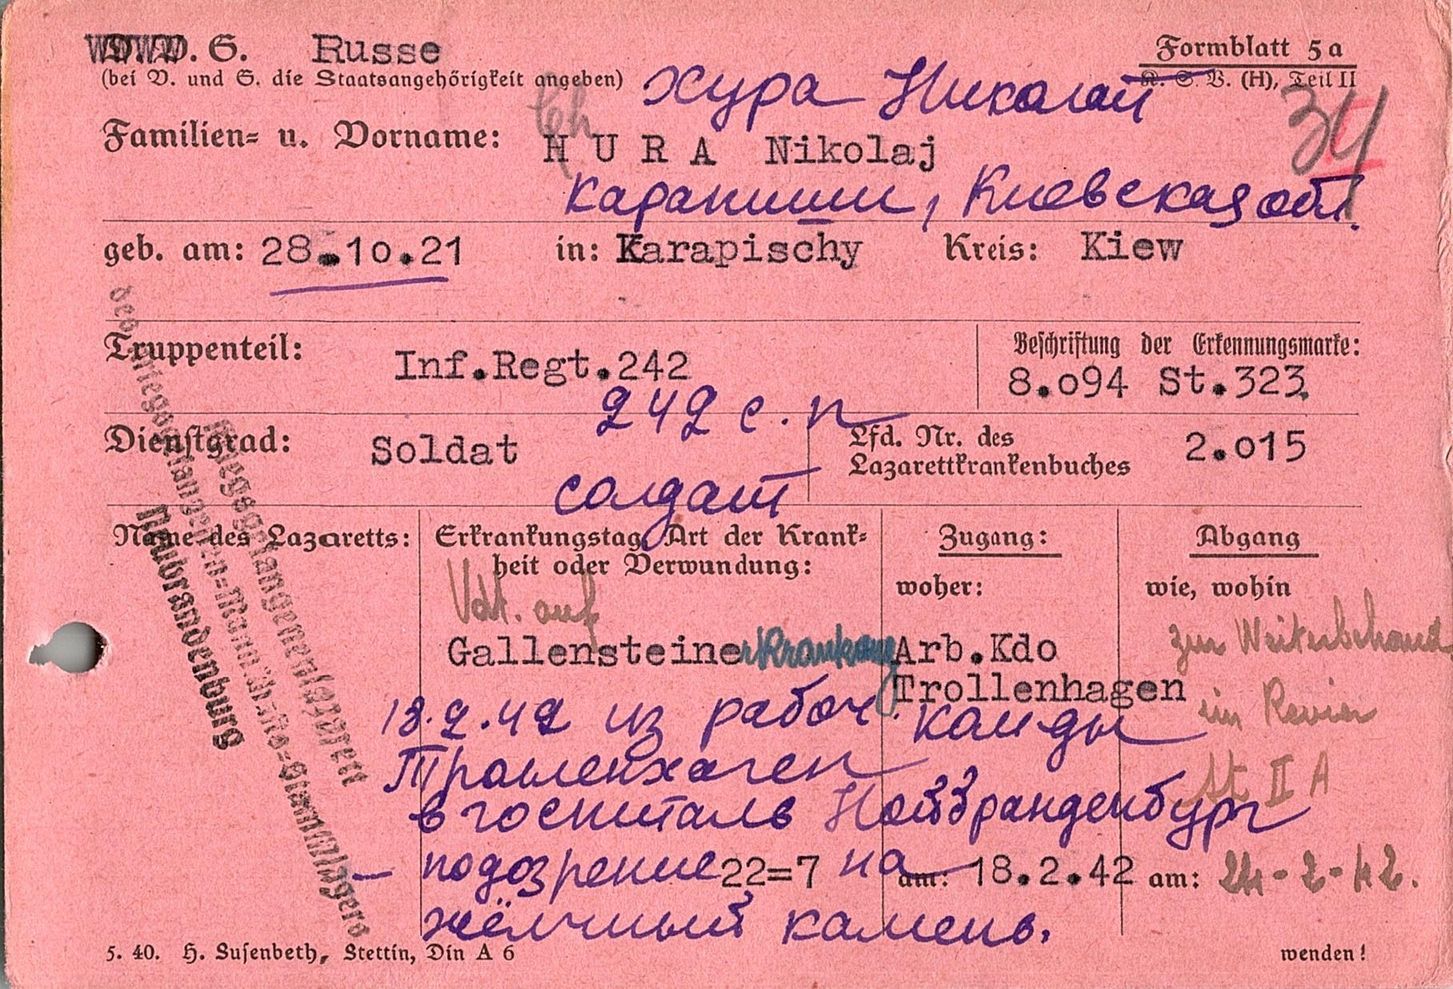 W. D. S. Russe
Formblatt 5a
(bei V. und S. die Staatsangehörigkeit angeben)
K. S. V. (H), Teil II
Хура Николай
34
Familien- u. Vorname:
Ch
HURA Nikolaj
Карапиши, Киевская обл.
geb. am: 28.10.21 in: Karapischy Kreis: Kiew
Truppenteil: Inf.Regt.242
Beschriftung der Erkennungsmarke:
8.o94 St.323
242 с.п
Dienstgrad: Soldat
Lfd. Nr. des
Lazarettkrankenbuches 2.o15
солдат
Name des Lazaretts:
Erkrankungstag, Art der Krank-
heit oder Verwundung:
Zugang:
woher:
Abgang
wie, wohin
Kriegsgefangenenlazarett
des Kriegsgefangenen-Mannsch.-Stammlagers
Neubrandenburg
Vdt. auf
Gallensteine Erkrankung
Arb.Kdo
Trollenhagen
zur Weiterbehand
im Revier
St II A
18.2.42 из рабоч. команды
Тролленхаген
в госпиталь Нойбранденбург
– подозрение 22=7 на
am: 18.2.42 am: 24-2-42.
жёлчный камень.
5. 40. H. Susenbeth, Stettin, Din A 6
wenden!